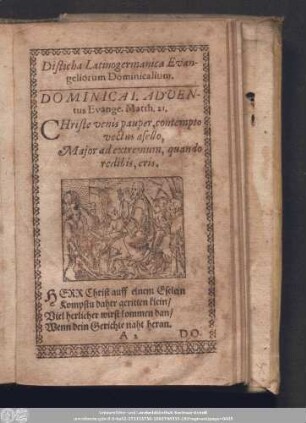 Disticha Latinogermanica Evan-
geliorum Dominicalium.
DOMINICA I. ADVEN-
tus Evange. Matth. 21.
CHriste venis pauper, contempto
vectus asello,
Major ad extremum, quando
redibis, eris.
HERR Christ auff einem Eselein
Kompstu daher geritten klein/
Viel herlicher wirst kommen dan/
Wenn dein Gerichte naht heran.
A 2 DO-